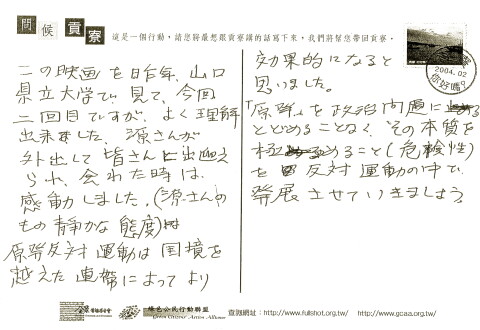 問候貢寮
這是一個行動，請您將最想跟貢寮講的話寫下來，我們將幫您帶回貢寮。
この映画を昨年、山口
県立大学で、見て、今回
二回目ですが、よく理解
出来ました、源さんが
外出して皆さんに出迎え
られ、会われた時は
感動しました。(源さんの
もの静かな態度)
原発反対運動は国境を
越えた連帯によってより
効果的になると
思いました。
「原発」を政治問題に
とどめることなく、その本質を
極めること(危険性)
を 反対運動の中で、
発展させていきましょう。
2004.02
你好嗎?
綠色公民行動聯盟
Green Citizens' Action Alliance
查詢網址：http://www.fullshot.org.tw/ http://www.gcaa.org.tw/